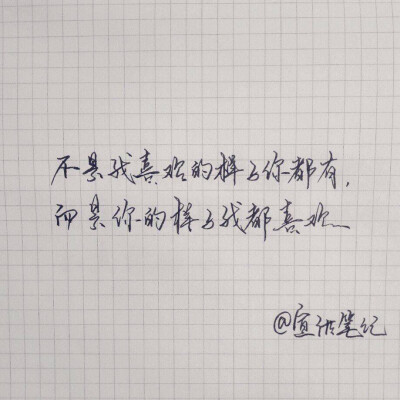 不是我喜欢的样子你都有，
而是你的样子我都喜欢
@宣作笔纪